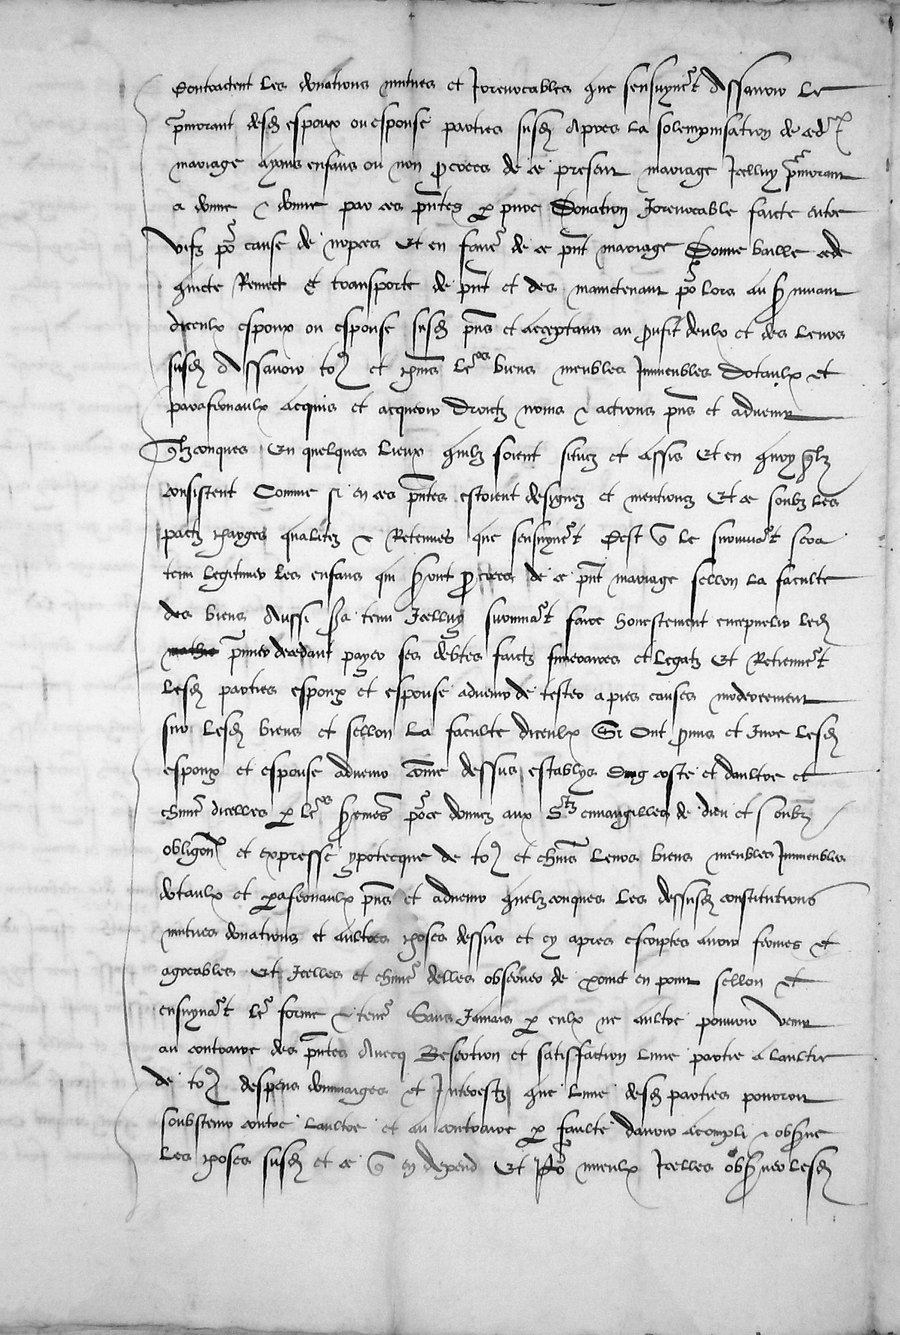 Contractent les donations mutues et Irrevocables que sensuyvet Assavoir Le
pmorant desd espoux ou espouse parties susd Apres la solempnisation de ced
mariage ayans enfans ou non procrees de ce present mariage Icelluy pmorant
a donne & donne par ces pntes p pure Donation Irrevocable faicte entre
vifz po cause de nopces Et en faver de ce pnt mariage Donne baille cede
quicte Remect Et transporte de pnt et des maintenant po lors au survivant
diceulx espoux ou espouse susd pns et acceptans au profit deulx et des leurs
susd Assavoir to et biens meubles Immeubles Dotaulx et
parafernaulx acquis et acquerir droictz noms & actions pns et advenir
qlzconques En quelques lieux quilz soient situez et assis Et en quoy qlz
consistent Comme si en ces pntes estoient designez et mentionez Et ce soubz les
pactz charges qualitez & Retenues que sensuyvet Cest q le survivat sera
tenu legitimer les enfans qui seront procrees de ce pnt mariage sellon la faculte
des biens Aussi sera tenu Icelluy survivat faire honestement ensepvelir led
pmier decedant payer ses debtes faictz funeraires et legatz Et Retiennet
Lesd parties espoux et espouse advenir de tester a pies causes moderement
sur lesd biens et sellon la faculte diceulx Si Ont pmis et Jure lesd
espoux et espouse advenir come dessus establys dung coste et daultre et
chune dicelles p leurs sermes poce donnez aux stz euvangilles de dieu et soubz
obligon et expresse ypotecque de to et chuns leurs biens meubles Immeubles
dotaulx et pafernaulx pns et advenir quelzconques les dessusd constitutions
mutues donations et aultres choses dessus et cy apres escriptes avoir fermes et
agreables Et Icelles et chune delles observer de point en point sellon et
ensuyvat le forme & tener Sans Jamais p eulx ne aultre pouvoir venir
au contraire des pntes Avecq Refection et satisffaction lune partie a laultre
de to despens dommaiges et Interestz que lune desd parties pourroit
soubstenir contre laultre et au contraire p faulte davoir acompli & observe
Les choses susd et ce q en depend Et po mieulx Icelles observer lesd